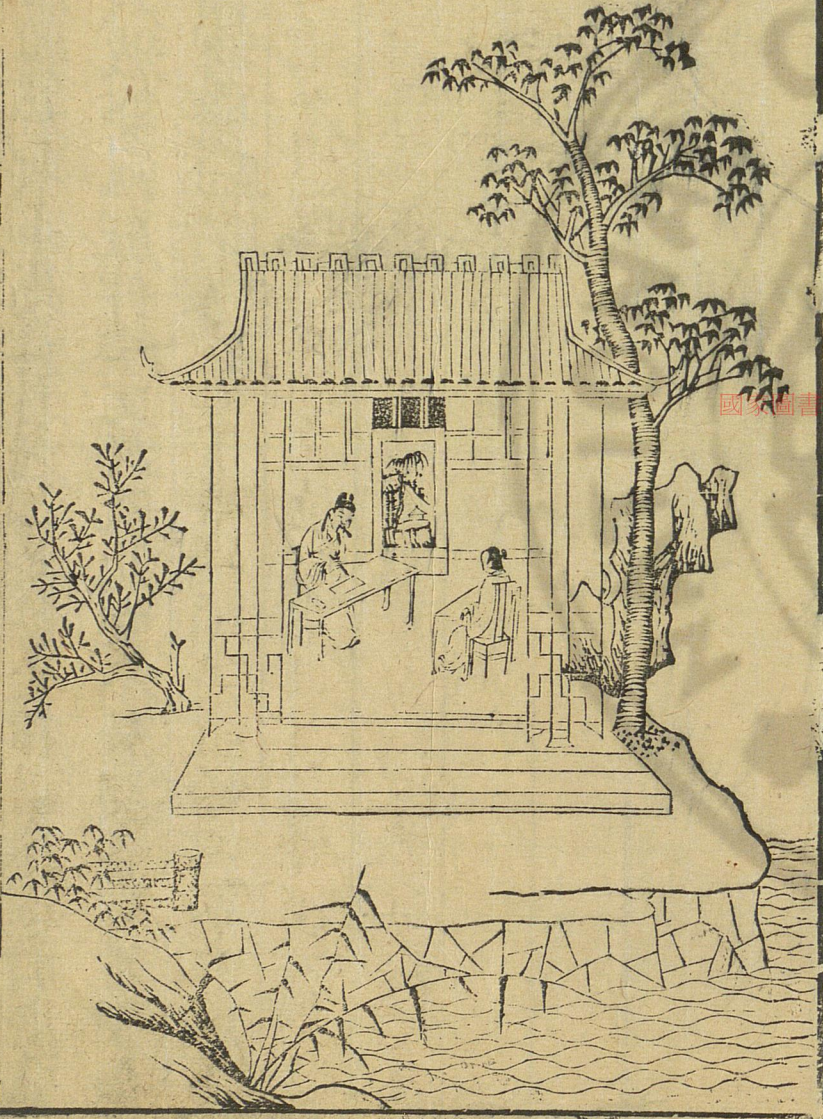 國家圖書